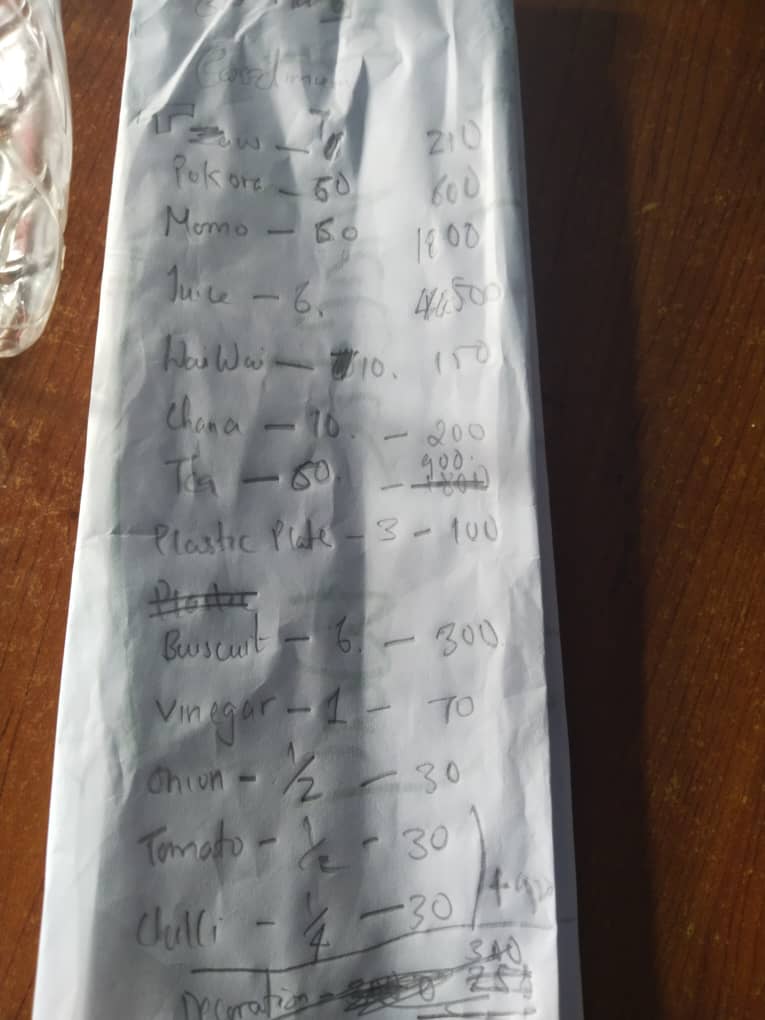 7 210
Pokora - 60 600
Momo - 60 1800
Juice - 6. 500
WaiWai - 10. 150
Chana - 10. - 200
Tea - 60. - 900.
Plastic Plate - 3 - 100
Buscuit - 6. - 300.
Vinegar - 1 - 70
Onion - 1/2 - 30
Tomato - 1/2 - 30
Chilli - 1/4 - 30
Decoration -